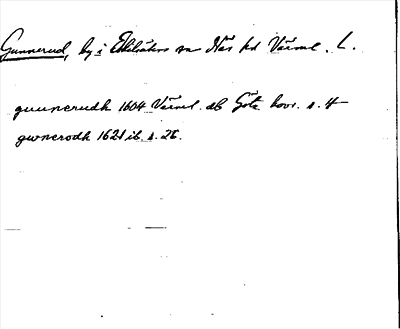 Gunnerud, by i Ekshärads sn Näs hd Värml. L.
gunnerudh 1604 Värml. ab Göta hovr. s. 4
gwnerodh 1621 ib. s. 28.